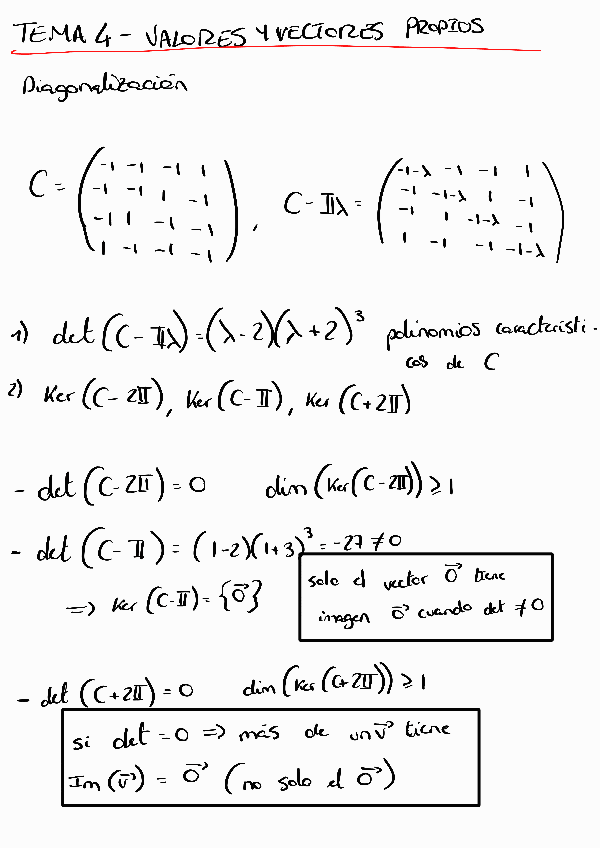 TEMA 4 - VALORES Y VECTORES PROPIOS
Diagonalización
C = (-1 -1 -1 1
-1 -1 1 -1
-1 1 -1 -1
1 -1 -1 -1) , C - 𝕀λ = (-1-λ -1 -1 1
-1 -1-λ 1 -1
-1 1 -1-λ -1
1 -1 -1 -1-λ)
1) det (C - 𝕀λ) = (λ-2)(λ+2)³ polinomios característi-
cos de C
2) Ker (C - 2𝕀), Ker (C - 𝕀), Ker (C + 2𝕀)
- det (C - 2𝕀) = 0 dim (Ker (C - 2𝕀)) ≥ 1
- det (C - 𝕀) = (1-2)(1+3)³ = -27 ≠ 0
=> Ker (C - 𝕀) = {0⃗}
solo el vector 0⃗ tiene
imagen 0⃗ cuando det ≠ 0
- det (C + 2𝕀) = 0 dim (Ker (C + 2𝕀)) ≥ 1
si det = 0 => más de un v⃗ tiene
Im (v⃗) = 0⃗ (no solo el 0⃗)